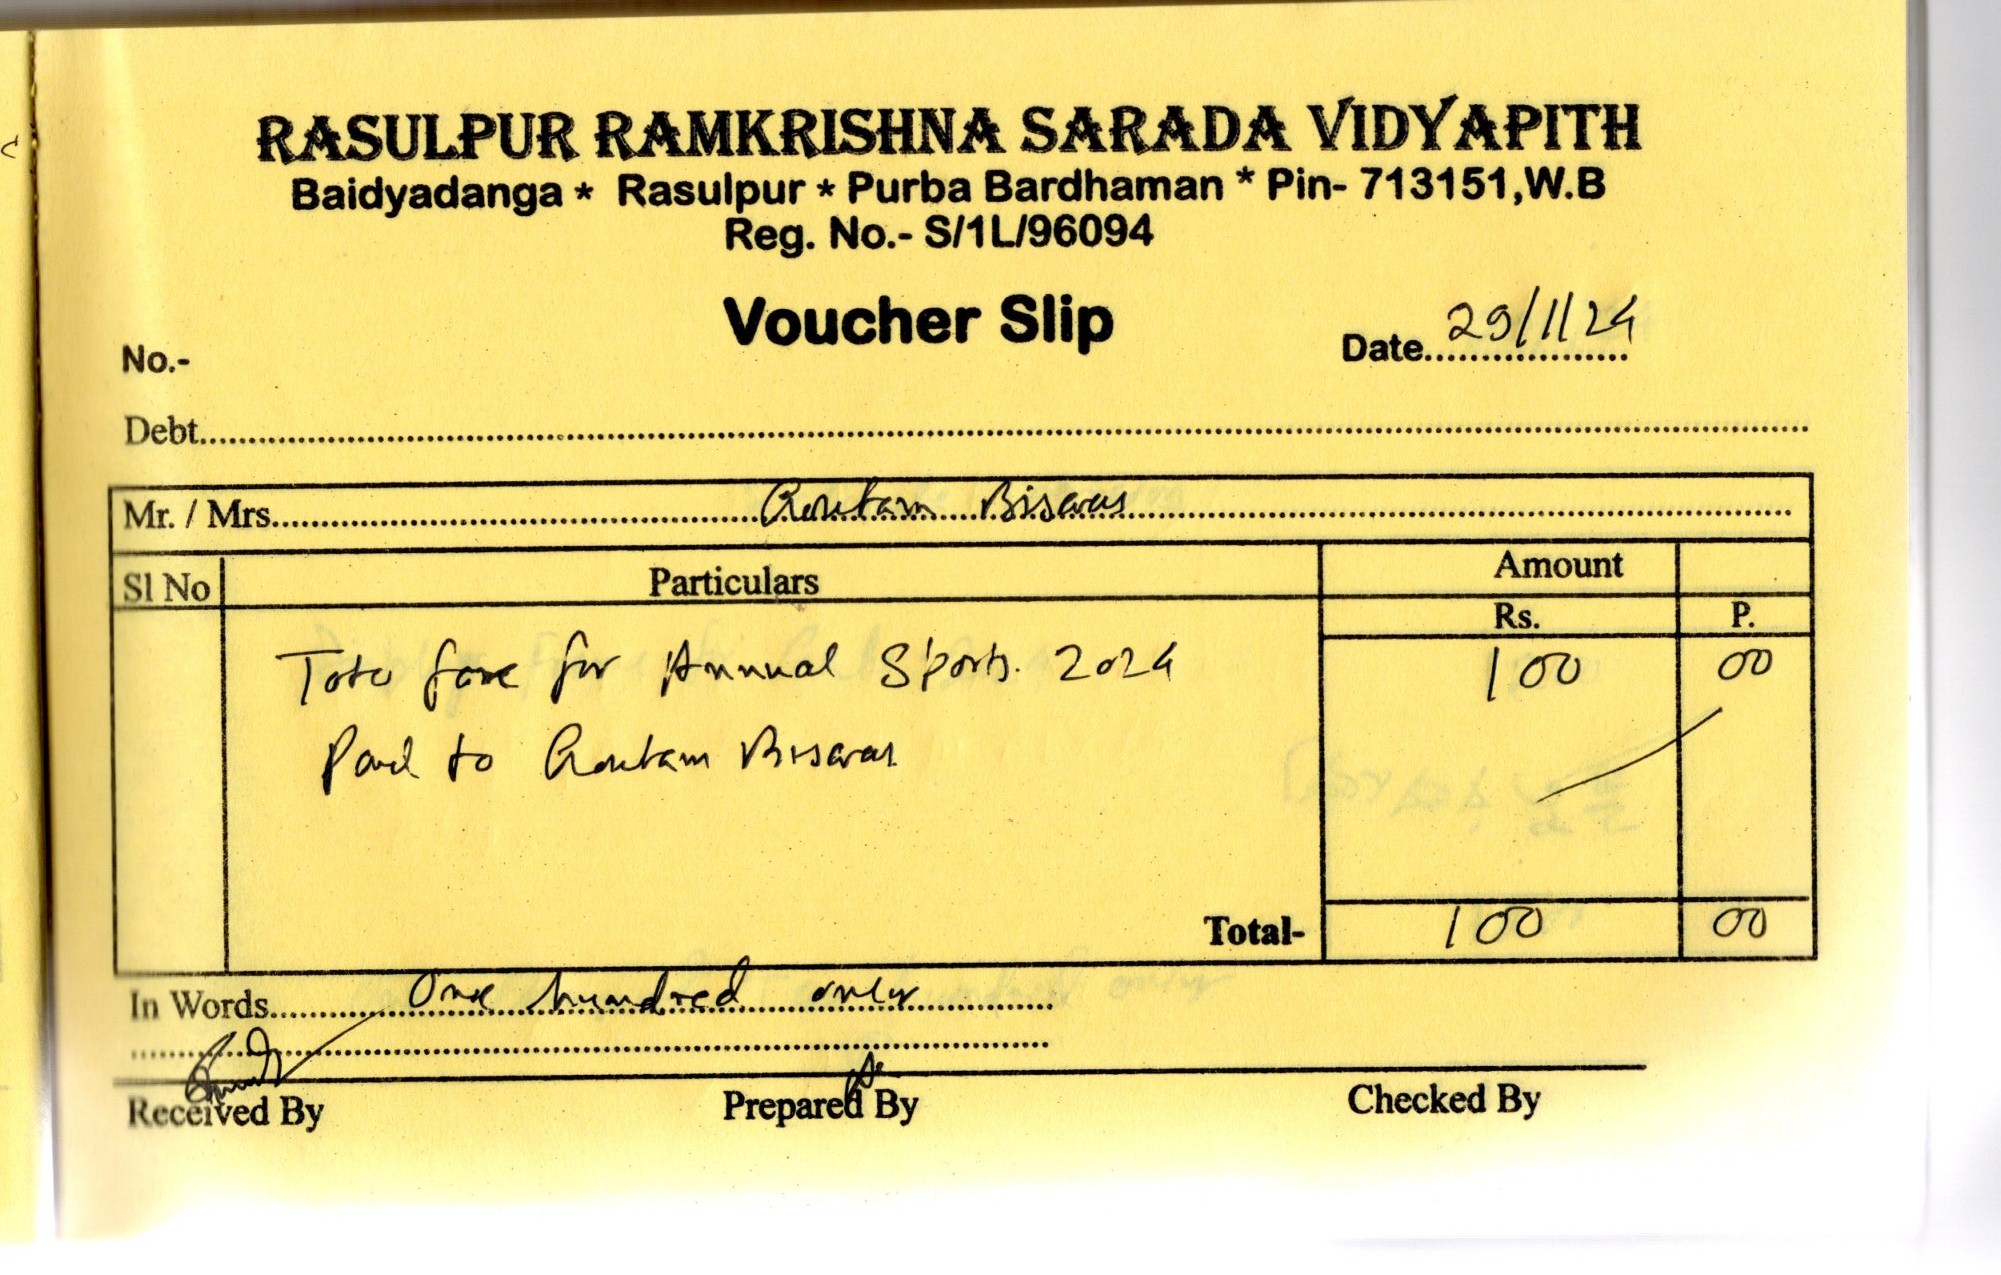 RASULPUR RAMKRISHNA SARADA VIDYAPITH
Baidyadanga * Rasulpur * Purba Bardhaman * Pin- 713151,W.B
Reg. No.- S/1L/96094
Voucher Slip
No.-
Date 29/11/24
Debt
Mr. / Mrs. Goutam Biswas
Sl No Particulars Amount
Rs. P.
Toto fare for Annual Sports. 2024 100 00
Paid to Goutam Biswas
Total- 100 00
In Words One hundred only
Received By Prepared By Checked By